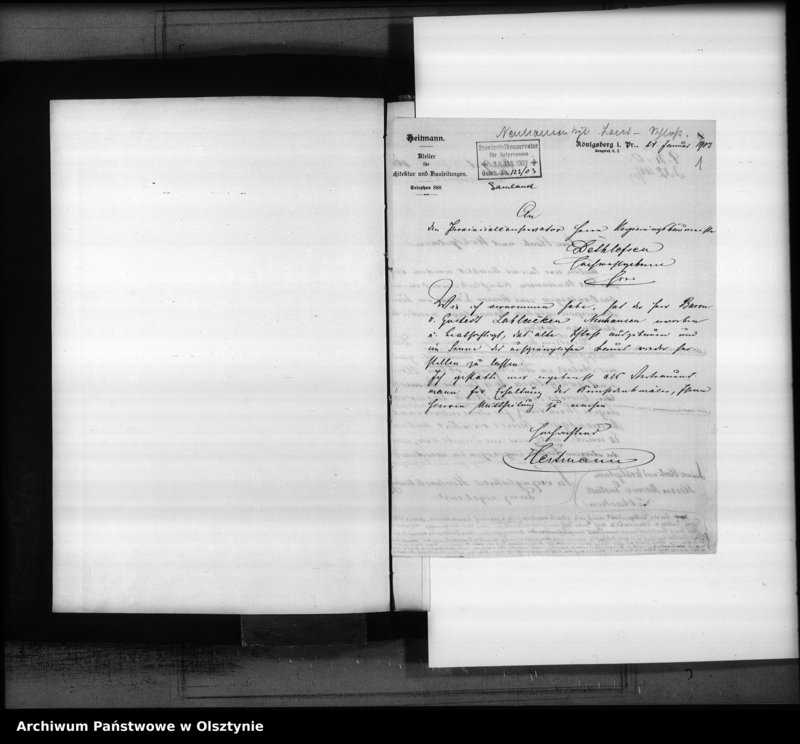 Neuhausen bzl. Land – Schloß.
Heitmann.
Atelier
für
chitektur und Bauleitungen.
Telephon
Königsberg i. Pr., 24 Januar 1903
1
Provinzialkonservator
für Ostpreussen
24 JAN. 1903
Gesch.-No. 123/03
Samland
An
den Provinzialconservator Herrn Regierungsbaumeister
Dethlefsen
Hochwohlgeboren
Hier
Wie ich vernommen habe, hat der Herr Baron
v. Gustedt Lablacken Neuhausen erworben
u. beabsichtigt, das alte Schloß auszubauen und
im Sinne des ursprünglichen Baues wieder her
stellen zu lassen.
Ich gestatte mir ergebenst als Vertrauens
mann für Erhaltung der Kunstdenkmäler, Ihnen
hiervon Mittheilung zu machen
Hochachtend
Heitmann
Archiwum Państwowe w Olsztynie